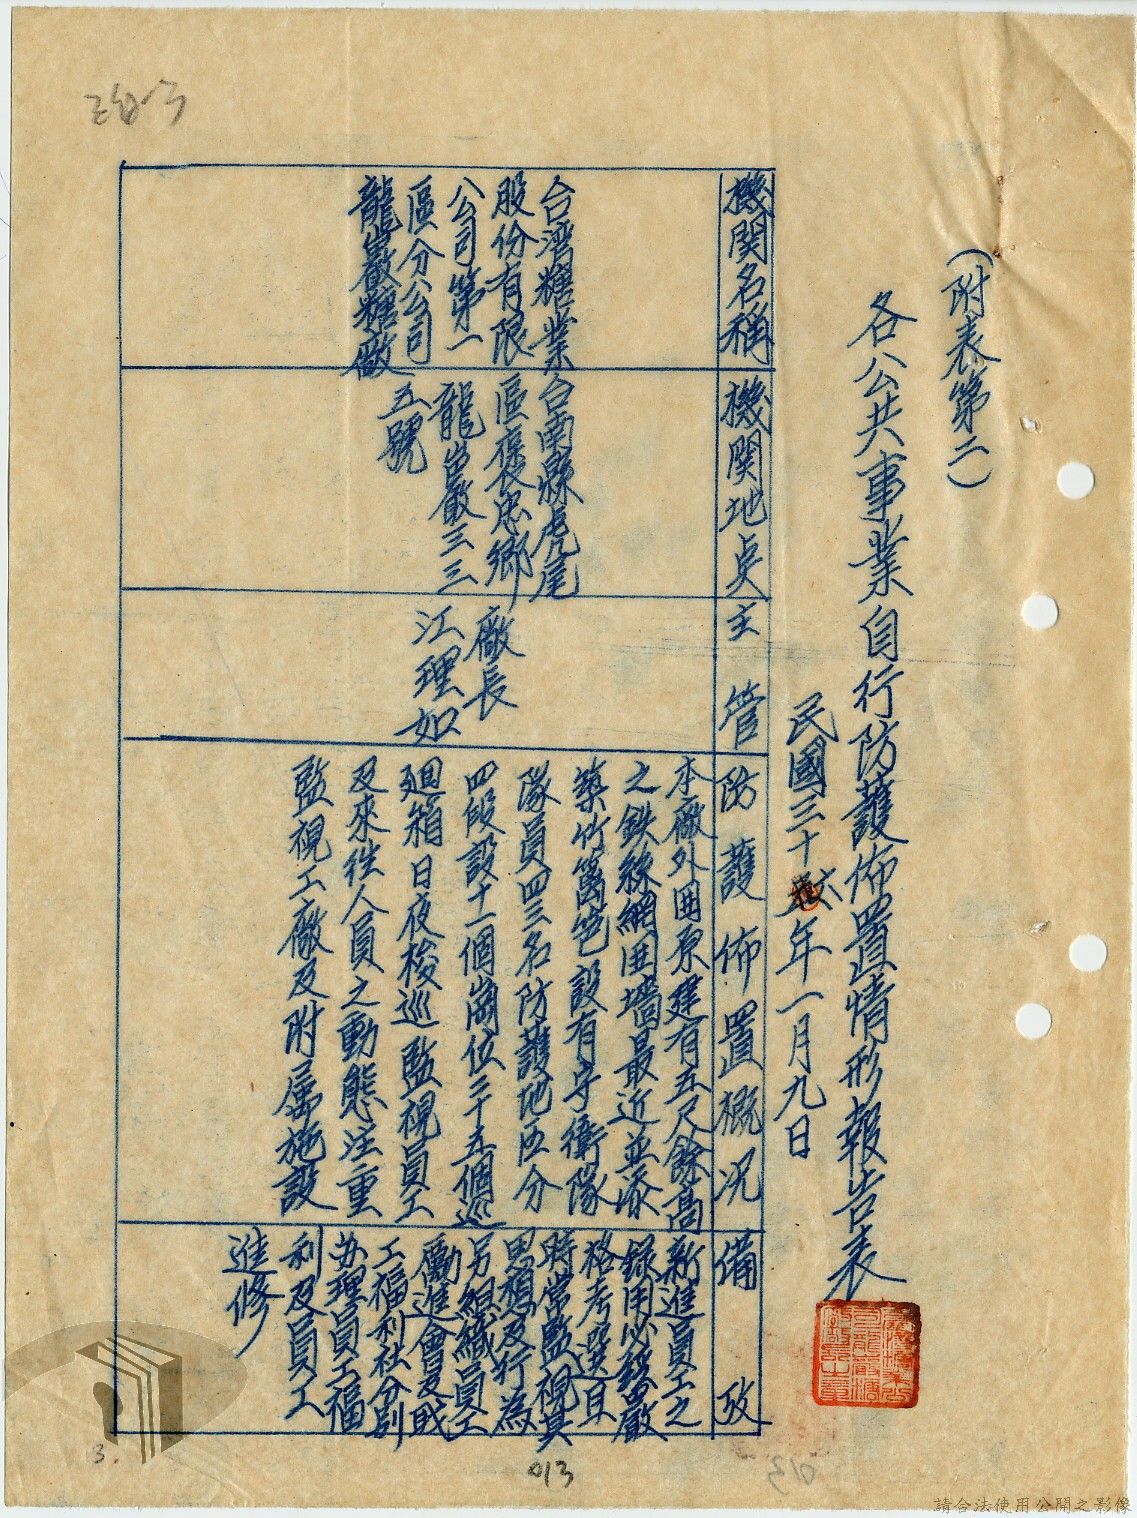 (附表第二)
各公共事業自行防護佈置情形報告表
民國三十六年一月九日
機関名稱
機関地点
主管
防護佈置概况
備攷
台湾糖業
股份有限
公司第一
區分公司
龍巖糖廠
台南縣虎尾
區褒忠鄉
龍巖三三
五號
廠長
江理如
本廠外囲原建有五尺餘高
之鉄絲網囲墻最近並添
築竹籬笆設有守衛隊
隊員四三名防護地区分
四段設十一個崗位三十五個巡
廻箱日夜梭巡監視員工
及來往人員之動態注重
監視工廠及附属施設
新進員工之
録用必經嚴
格考選且
時常監視其
思想及行為
另組織員工
勵進會及戝
工福利社分別
办理員工福
利及員工
進修
3.
013
請合法使用公開之影像